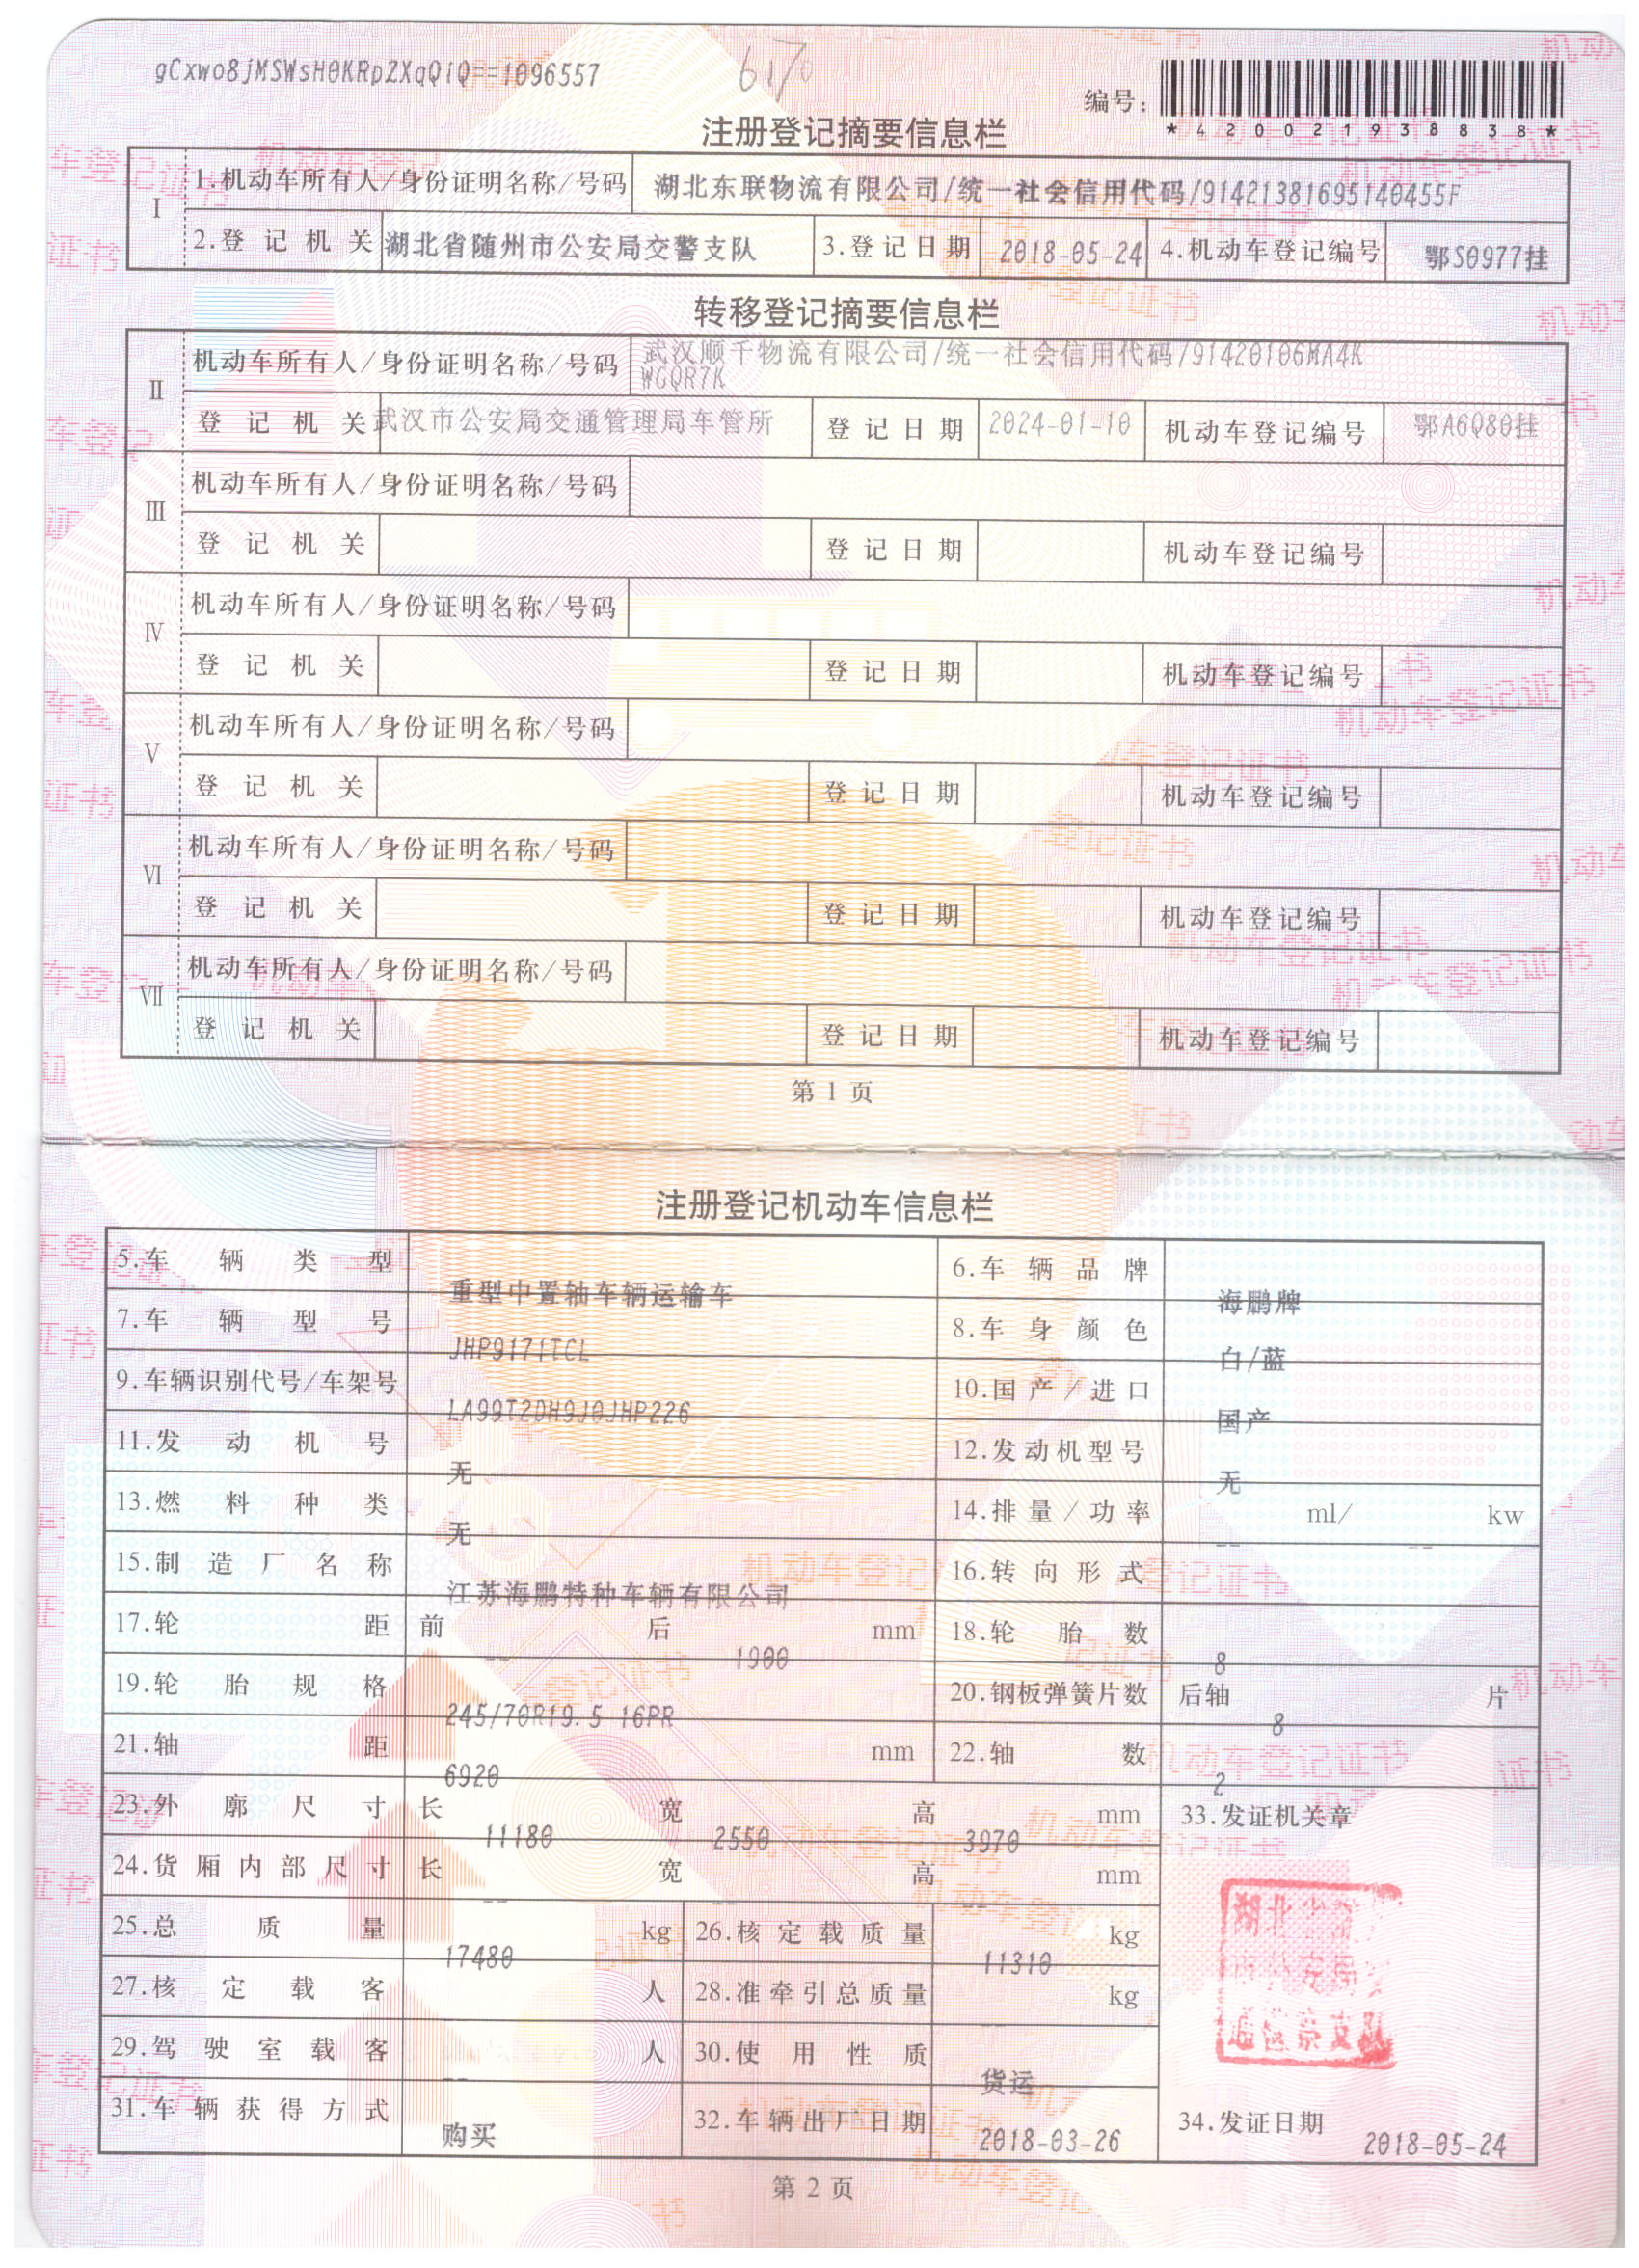 gCxwo8jMSWsH0KRpZXqQiQ==1096557
6170
编号：
*420021938838*
注册登记摘要信息栏
I
1.机动车所有人/身份证明名称/号码 湖北东联物流有限公司/统一社会信用代码/91421381695140455F
2.登记机关 湖北省随州市公安局交警支队 3.登记日期 2018-05-24 4.机动车登记编号 鄂S0977挂
转移登记摘要信息栏
II
机动车所有人/身份证明名称/号码 武汉顺千物流有限公司/统一社会信用代码/91420106MA4K
WGQR7K
登记机关 武汉市公安局交通管理局车管所 登记日期 2024-01-10 机动车登记编号 鄂A6Q80挂
III
机动车所有人/身份证明名称/号码
登记机关 登记日期 机动车登记编号
IV
机动车所有人/身份证明名称/号码
登记机关 登记日期 机动车登记编号
V
机动车所有人/身份证明名称/号码
登记机关 登记日期 机动车登记编号
VI
机动车所有人/身份证明名称/号码
登记机关 登记日期 机动车登记编号
VII
机动车所有人/身份证明名称/号码
登记机关 登记日期 机动车登记编号
第 1 页
注册登记机动车信息栏
5.车辆类型 重型中置轴车辆运输车 6.车辆品牌 海鹏牌
7.车辆型号 JHP9171TCL 8.车身颜色 白/蓝
9.车辆识别代号/车架号 LA99T2DH9J0JHP226 10.国产/进口 国产
11.发动机号 无 12.发动机型号 无
13.燃料种类 无 14.排量/功率 -- ml/ -- kw
15.制造厂名称 江苏海鹏特种车辆有限公司 16.转向形式
17.轮距 前 -- 后 1900 mm 18.轮胎数 8
19.轮胎规格 245/70R19.5 16PR 20.钢板弹簧片数 后轴 8 片
21.轴距 6920 mm 22.轴数 2
23.外廓尺寸 长 11180 宽 2550 高 3970 mm 33.发证机关章
24.货厢内部尺寸 长 -- 宽 -- 高 -- mm
25.总质量 17480 kg 26.核定载质量 11310 kg
27.核定载客 -- 人 28.准牵引总质量 -- kg
29.驾驶室载客 -- 人 30.使用性质 货运
31.车辆获得方式 购买 32.车辆出厂日期 2018-03-26 34.发证日期 2018-05-24
第 2 页